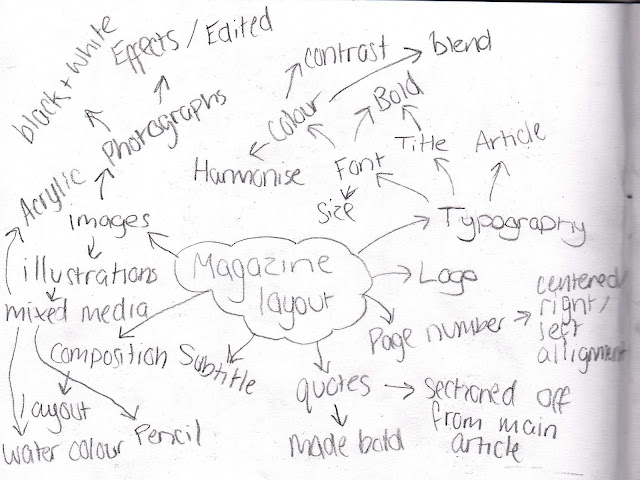 black + white
Effects / Edited
contrast
blend
Colour
Bold
Photographs
Harmonise
Font
Title
Article
Acrylic
images
Size
Typography
illustrations
Magazine
layout
Logo
centered/
right/
left
allignment
mixed media
Page number
composition
Subtitle
quotes
sectioned off
from main
article
layout
water colour
Pencil
made bold